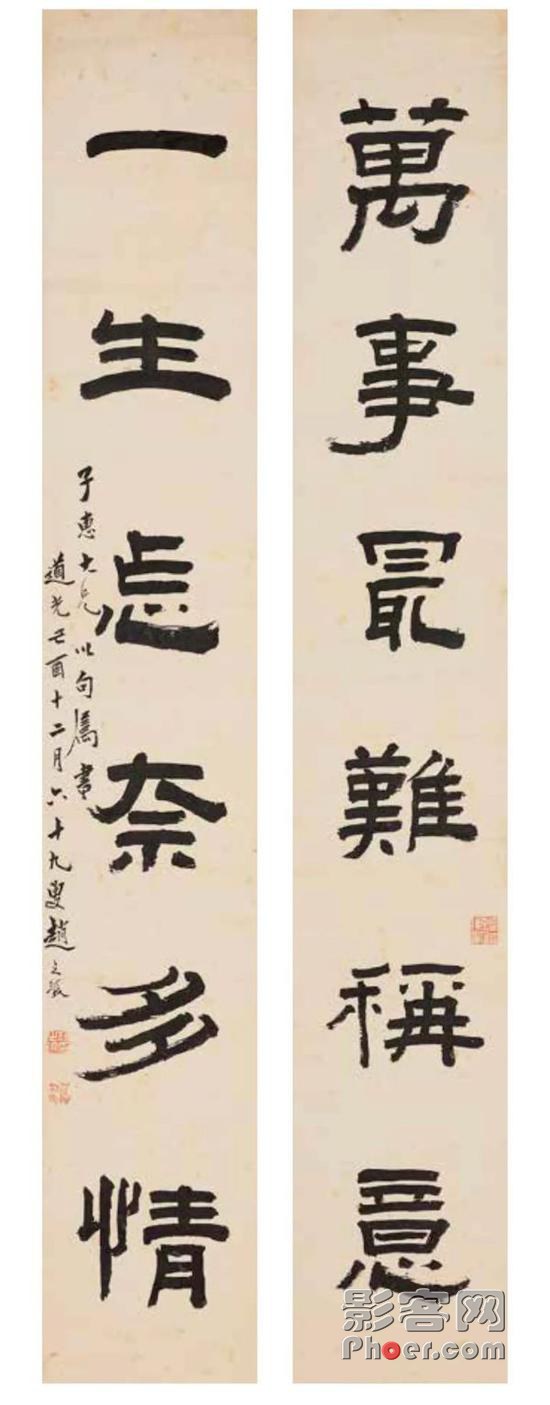 萬事最難稱意
一生怎奈多情
子惠大兄以句屬書
道光己酉十二月六十九叟趙之琛
影客网
Phoer.com